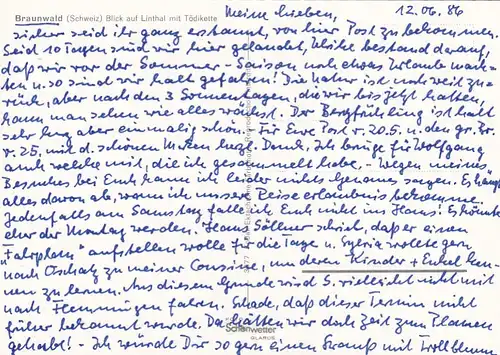 Braunwald (Schweiz) Blick auf Linthal mit Tödikette
Meine Lieben, 12.06.86
sicher seid ihr ganz erstaunt, von hier Post zu bekommen.
Seid 10 Tagen sind wir hier gelandet, bestand darauf,
daß wir vor der Sommer-Saison noch etwas Urlaub mach-
ten u. so sind wir halt gefahren! Die Natur ist noch weit zu-
rück, aber nach den 3 Sonnentagen, die wir bis jetzt hatten,
kann man sehen wie alles wächst. Der Bergfrühling ist halt
sehr kurz aber einmalig schön. - Für Eure Post v. 20.5. u. den gr. Br.
v. 25. mit d. schönen Marken herzl. Dank. Ich bringe für Wolfgang
auch welche mit, die ich gesammelt habe. - Wegen meines
Besuches bei Euch kann ich leider nichts Genaues sagen. Es hängt
alles davon ab, wann ich unsere Reiseerlaubnis bekomme.
Jedenfalls am Samstag falle ich Euch nicht ins Haus! Es könnte
eher der Montag werden! Hans Söllner schrieb, daß er einen
"Fahrplan" aufstellen wolle für die Tage u. Sylvia wollte gern
nach Oschatz zu meiner Cousine, um deren Kinder + Enkel ken-
nen zu lernen. Aus diesem Grunde wird S. vielleicht nicht mit
nach Flemmingen fahren. Schade, daß dieser Termin nicht
früher bekannt wurde. Da hätten wir doch Zeit zum Planen
gehabt! - Ich würde Dir so gern einen Strauß mit Trollblumen
Schönwetter
GLARUS